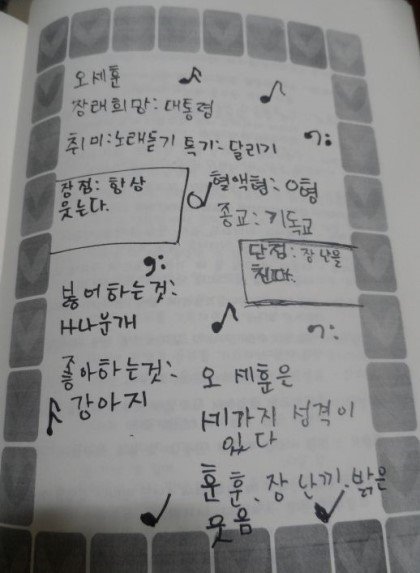 오세훈
장래희망: 대통령
취미: 노래듣기 특기: 달리기
장점: 항상
웃는다.
혈액형: O형
종교: 기독교
단점: 장난을
친다.
싫어하는것:
싸나분개
좋아하는것:
강아지
오세훈은
세가지 성격이
있다
훈훈, 장난끼, 밝은
웃음